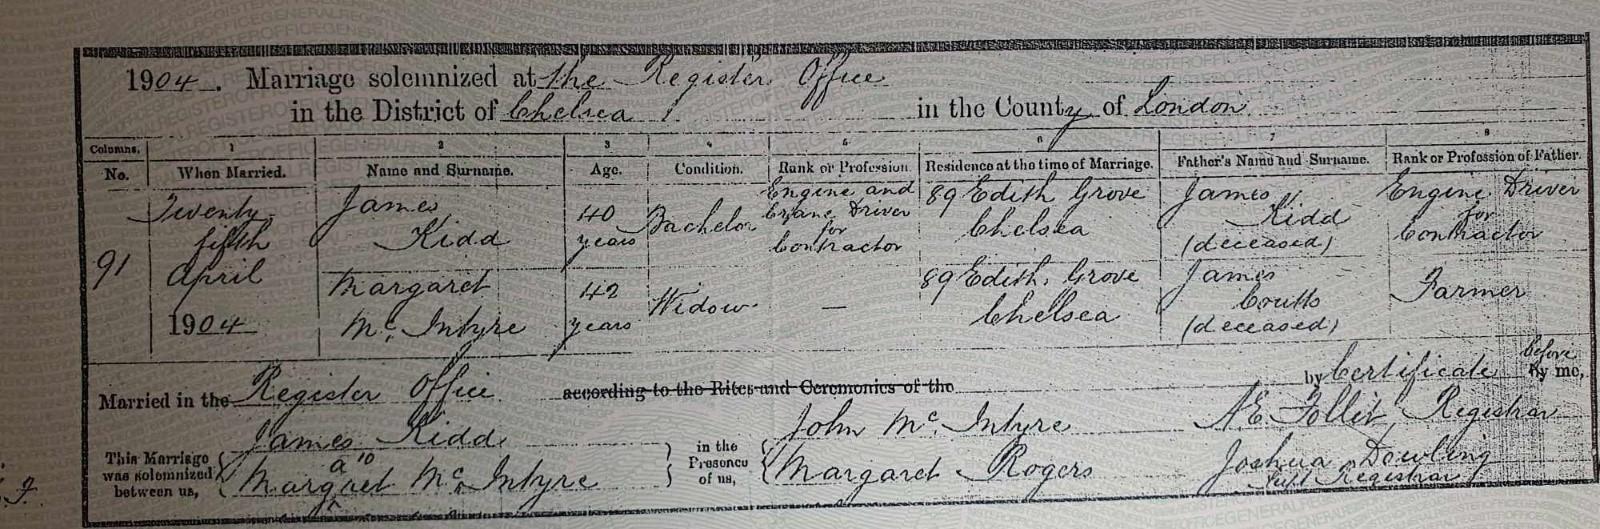 1904. Marriage solemnized at the Register Office
in the District of Chelsea in the County of London
Columns. 1 2 3 4 5 6 7 8
No. When Married. Name and Surname. Age. Condition. Rank or Profession. Residence at the time of Marriage. Father's Name and Surname. Rank or Profession of Father.
91
Twenty
fifth
April
1904
James
Kidd
40
years
Bachelor
Engine and
Crane Driver
for
Contractor
89 Edith Grove
Chelsea
James
Kidd
(deceased)
Engine Driver
for
Contractor
Margaret
McIntyre
42
years
Widow
—
89 Edith Grove
Chelsea
James
Coutts
(deceased)
Farmer
Married in the Register Office according to the Rites and Ceremonies of the by Certificate before
by me,
This Marriage
was solemnized
between us,
James Kidd
Margaret McIntyre
in the
Presence
of us,
John McIntyre
Margaret Rogers
A.E. Registrar
Joshua Dowling
Supt Registrar
REGISTER OFFICE GENERAL